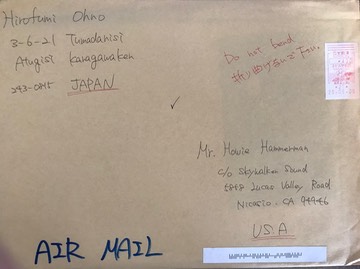 Hirofumi Ohno
3-6-21 Tumadanisi
Atugisi Kanagawaken
243-0815 JAPAN
Do not bend
折り曲げないで下さい。
Mr. Howie Hammerman
c/o Skywalker Sound
5858 Lucas Valley Road
Nicasio, CA 94946
U.S.A
AIR MAIL